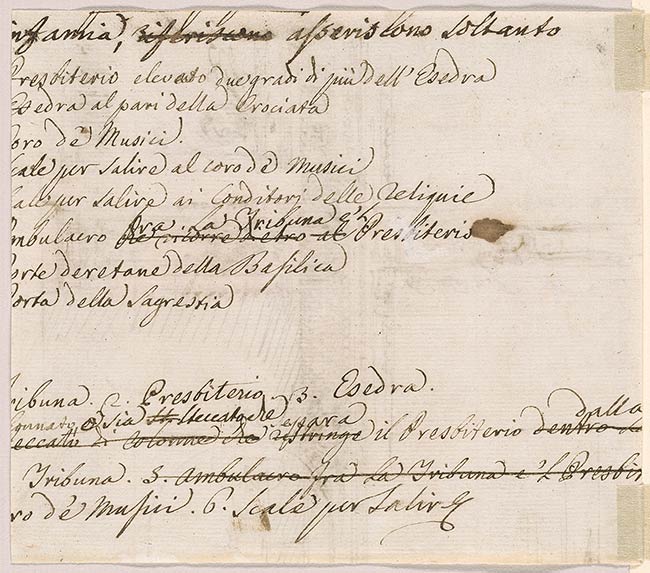 infamia, riferiscono asseriscono soltanto
Presbiterio elevato due gradi di più dell'Esedra
Esedra al pari della Crociata
Coro de Musici.
Scale per Salire al coro de Musici
Scale per Salire ai Conditorj delle Reliquie
fra la Tribuna e'l
Ambulacro che ricorre dietro al Presbiterio
Porte deretane della Basilica
Porta della Sagrestia
Tribuna. 2. Presbiterio. 3. Esedra.
O sia Steccato che separa dalla
Steccato di Colonne che ristringe il Presbiterio dentro la
Tribuna. 5. Ambulacro fra la Tribuna e'l Presbit
oro de Musici. 6. Scale per Salir